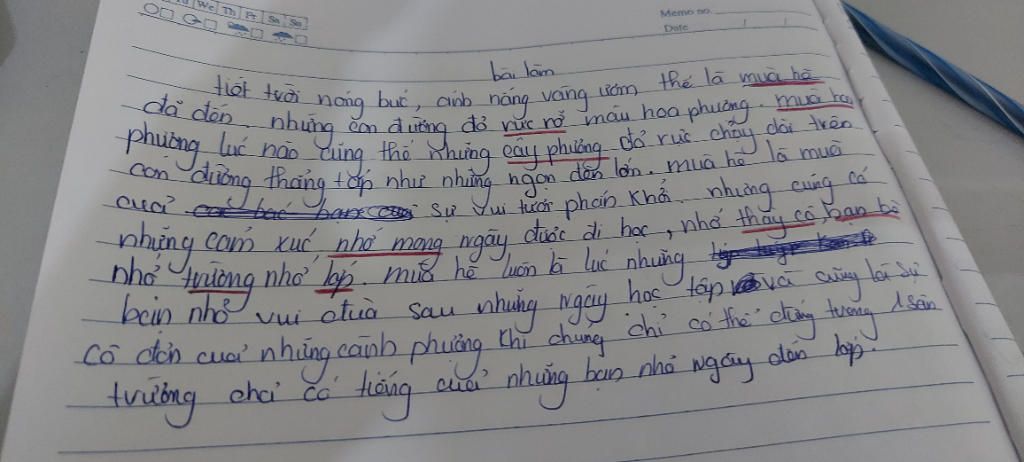 We Th Fr Sa Su
Memo no.
Date / /
bài làm
tiết trời nóng bức, ánh nắng vàng ươm thế là mùa hè
đã đến những con đường đỏ rực rỡ màu hoa phượng. mùa hè
phượng lúc nào cũng thế những cây phượng đỏ rực chạy dài trên
con đường thẳng tắp như những ngọn đến lớn. mùa hè là mùa
cuả sự vui tươi phấn khởi. nhưng cũng có
những cảm xúc nhớ mong ngày được đi học, nhớ thầy cô, bạn bè
nhớ trường nhớ lớp. mùa hè luôn là lúc những
bạn nhỏ vui đùa sau những ngày học tập và cũng là sự
cô đơn cuả những cành phượng khi chúng chỉ có thể đứng tương sân
trường chỉ có tiếng cuả những bạn nhỏ ngày đến lớp.